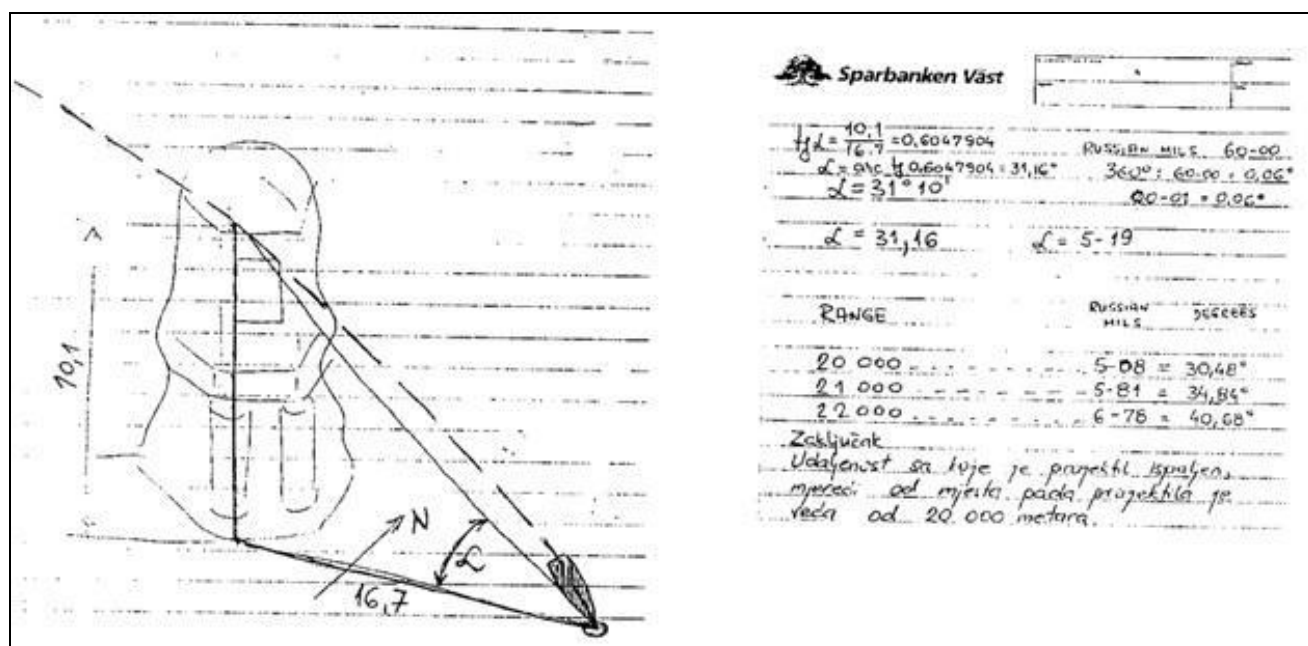 10,1
N
α
16,7
Sparbanken Väst
tg α = 10,1 / 16,7 = 0,6047904
α = arc tg 0,6047904 = 31,16°
α = 31° 10'
RUSSIAN MILS 60-00
360° : 60-00 = 0,06°
00-01 = 0,06°
α = 31,16 α = 5-19
RANGE RUSSIAN MILS DEGREES
20 000 5-08 = 30,48°
21 000 5-81 = 34,84°
22 000 6-78 = 40,68°
Zaključak
Udaljenost sa koje je projektil ispaljen,
mjereći od mjesta pada projektila je
veća od 20 000 metara.